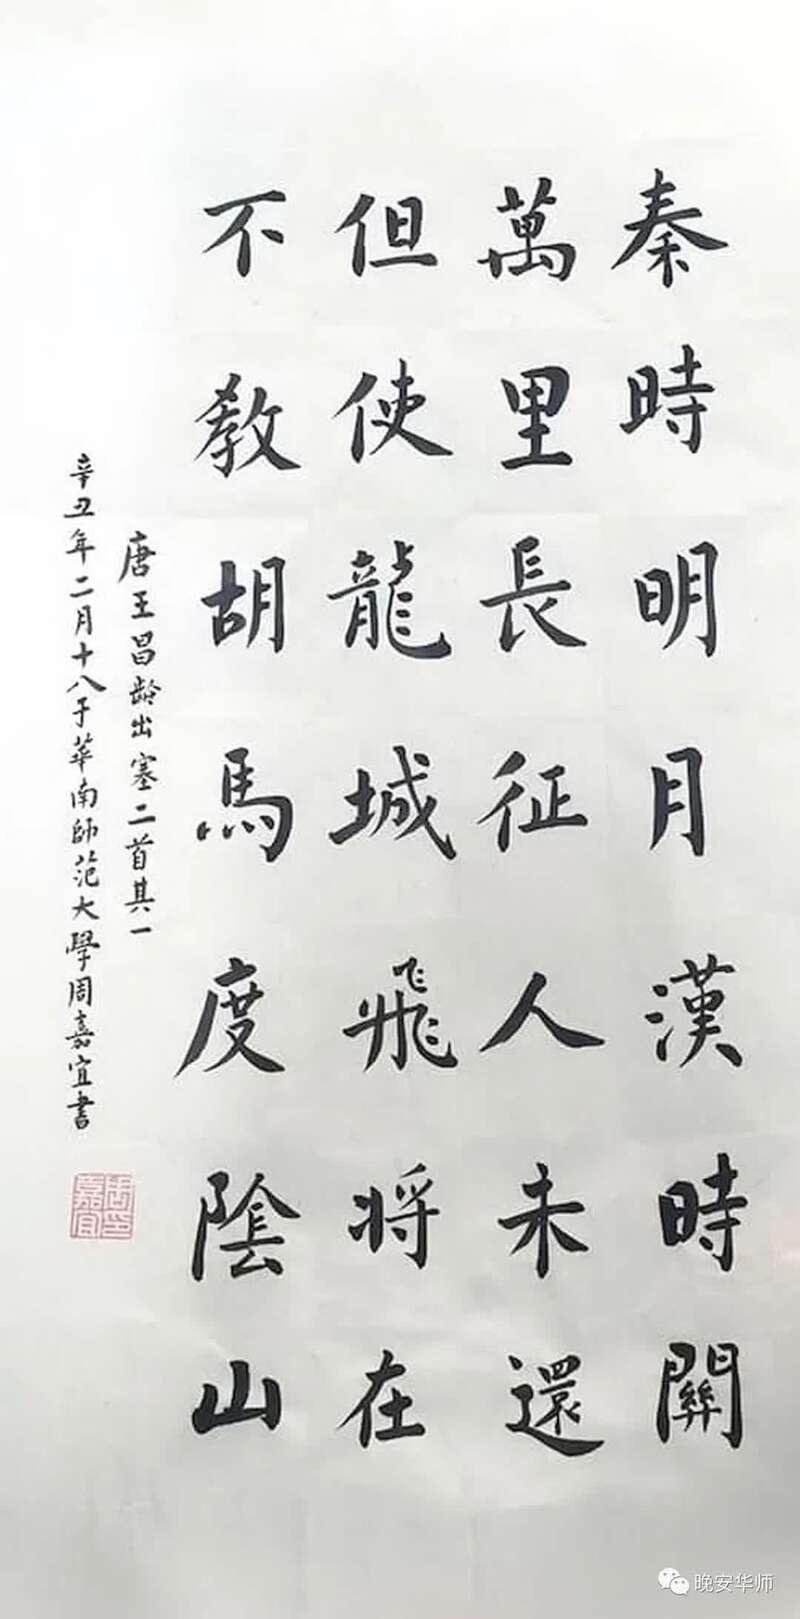 秦時明月漢時關
萬里長征人未還
但使龍城飛将在
不教胡馬度陰山
唐王昌龄出塞二首其一
辛丑年二月十八于華南師范大學周嘉宜書
周印嘉宜
晚安华师